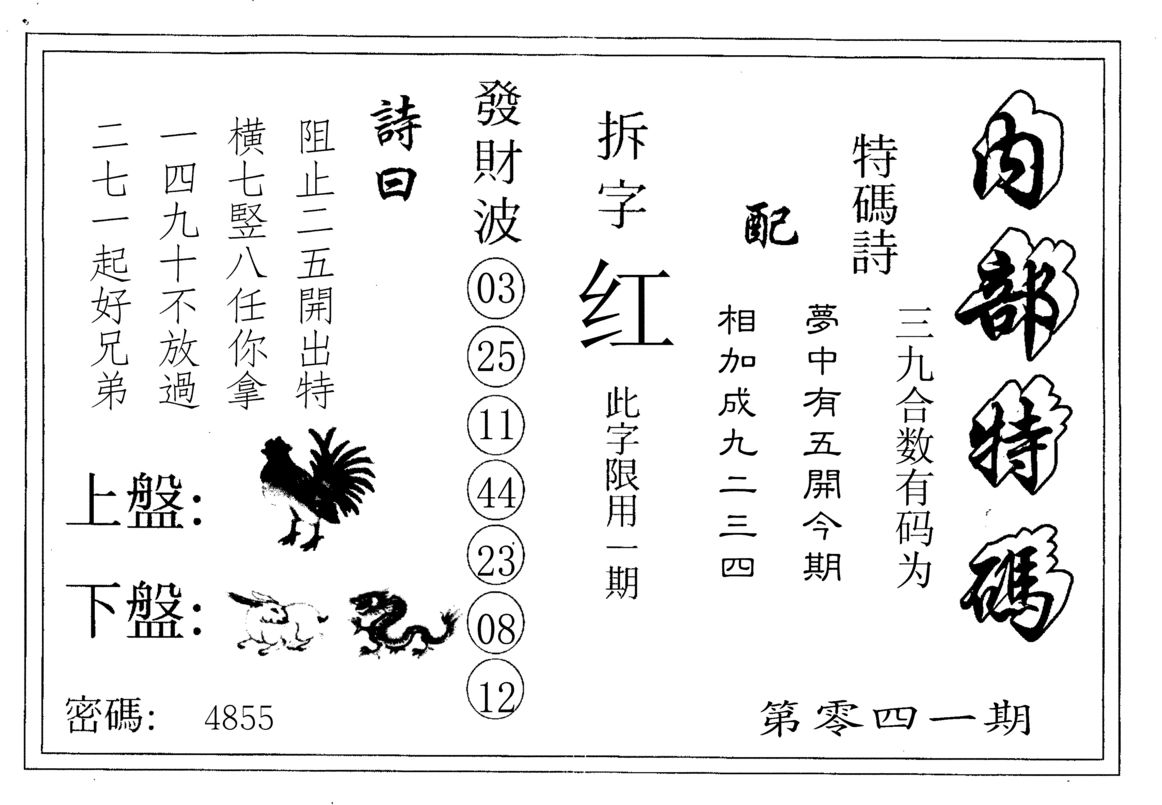 内部特碼
第零四一期
特碼詩
三九合数有码为
夢中有五開今期
配
相加成九二三四
拆字
红
此字限用一期
發財波
03
25
11
44
23
08
12
詩曰
阻止二五開出特
橫七竪八任你拿
一四九十不放過
二七一起好兄弟
上盤：
下盤：
密碼： 4855